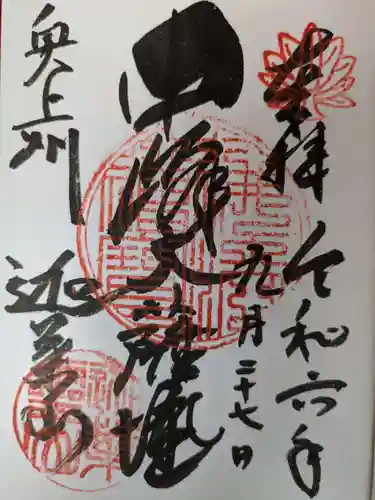 奉拝 令和六年
九月二十七日
中峰大薩埵
奥上州
迦葉山